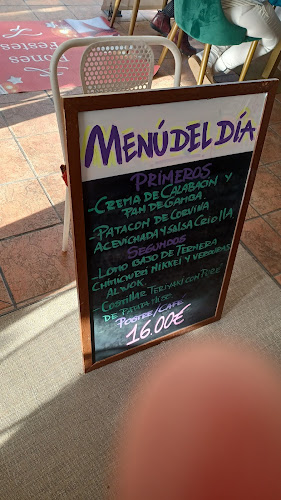 Bones
Festes
MENÚ DEL DÍA
PRIMEROS
-CREMA DE CALABACIN Y
PAN DE GAMBA.
-PATACON DE CORVINA
ACEVICHADA Y SALSA CRIOLLA
SEGUNDOS
-LOMO BAJO DE TERNERA
CHIMICHURRI NIKKEI Y VERDURAS
AL WOK.
-COSTILLAR TERIYAKI CON PURÉ
DE PATATA
POSTRE/CAFÉ
16.00€